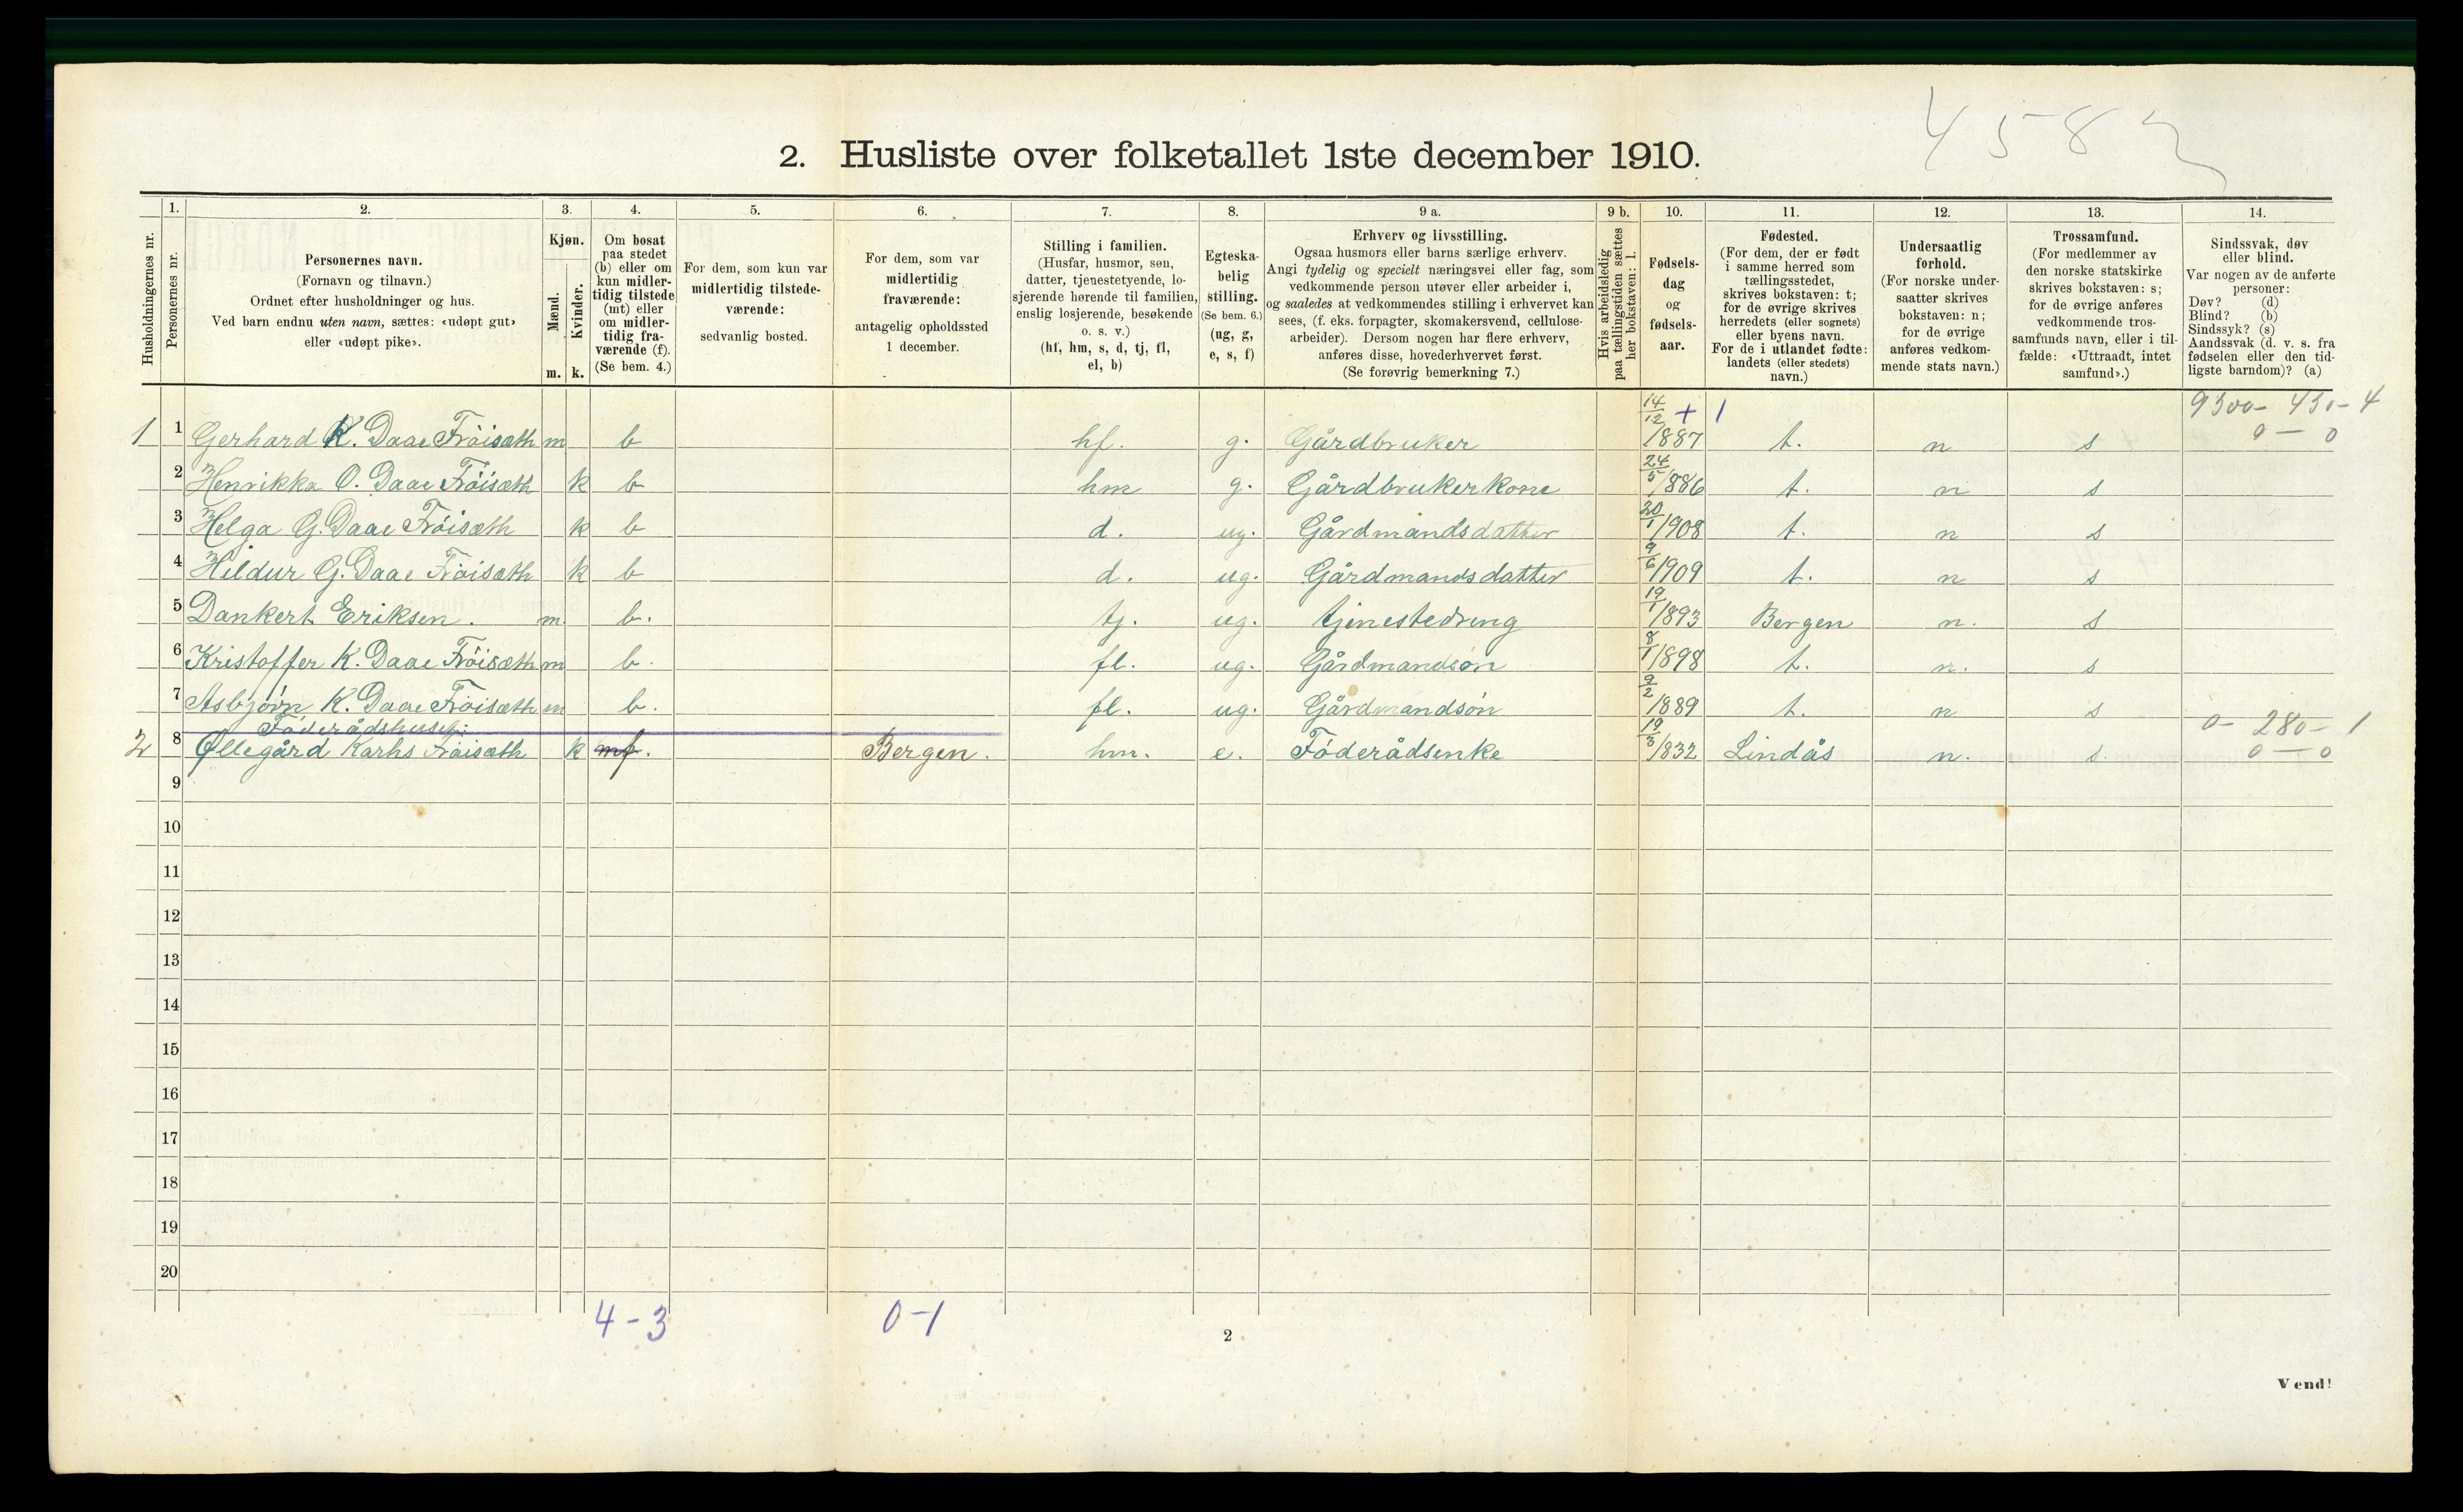 4582
2. Husliste over folketallet 1ste december 1910.
Husholdningernes nr.
1. Personernes nr.
2. Personernes navn. (Fornavn og tilnavn.) Ordnet efter husholdninger og hus. Ved barn endnu uten navn, sættes: «udøpt gut» eller «udøpt pike».
3. Kjøn. Mænd. m. Kvinder. k.
4. Om bosat paa stedet (b) eller om kun midlertidig tilstede (mt) eller om midlertidig fraværende (f). (Se bem. 4.)
5. For dem, som kun var midlertidig tilstedeværende: sedvanlig bosted.
6. For dem, som var midlertidig fraværende: antagelig opholdssted 1 december.
7. Stilling i familien. (Husfar, husmor, søn, datter, tjenestetyende, losjerende hørende til familien, enslig losjerende, besøkende o. s. v.) (hf, hm, s, d, tj, fl, el, b)
8. Egteskabelig stilling. (Se bem. 6.) (ug, g, e, s, f)
9 a. Erhverv og livsstilling. Ogsaa husmors eller barns særlige erhverv. Angi tydelig og specielt næringsvei eller fag, som vedkommende person utøver eller arbeider i, og saaledes at vedkommendes stilling i erhvervet kan sees, (f. eks. forpagter, skomakersvend, cellulosearbeider). Dersom nogen har flere erhverv, anføres disse, hovederhvervet først. (Se forøvrig bemerkning 7.)
9 b. Hvis arbeidsledig paa tællingstiden sættes her bokstaven: l.
10. Fødselsdag og fødselsaar.
11. Fødested. (For dem, der er født i samme herred som tællingsstedet, skrives bokstaven: t; for de øvrige skrives herredets (eller sognets) eller byens navn. For de i utlandet fødte: landets (eller stedets) navn.)
12. Undersaatlig forhold. (For norske undersaatter skrives bokstaven: n; for de øvrige anføres vedkommende stats navn.)
13. Trossamfund. (For medlemmer av den norske statskirke skrives bokstaven: s; for de øvrige anføres vedkommende trossamfunds navn, eller i tilfælde: «Uttraadt, intet samfund».)
14. Sindssvak, døv eller blind. Var nogen av de anførte personer: Døv? (d) Blind? (b) Sindssyk? (s) Aandssvak (d. v. s. fra fødselen eller den tidligste barndom)? (a)
14/12 + 1 9300- 430-4
1 1 Gerhard K. Daae Fröisæth m b hf. g. Gårdbruker 1887 t. n s 0 - 0
2 Henrikka O. Daae Fröisæth k b hm g. Gårdbrukerkone 24/5 1886 t. n s
3 Helga G. Daae Fröisæth k b d. ug. Gårdmandsdatter 20/1 1908 t. n s
4 Hildur G. Daae Fröisæth k b d. ug. Gårdmandsdatter 9/6 1909 t. n s
5 Dankert Eriksen. m b. tj. ug. tjenestedreng 19/1 1893 Bergen n. s
6 Kristoffer K. Daae Fröisæth m b. fl. ug. Gårdmandsön 8/1 1898 t. n. s
7 Asbjörn K. Daae Fröisæth m b. fl. ug. Gårdmandsön 9/2 1889 t. n s
Föderådshuset: 0- 280- 1
2 8 Ollegård Karhs Fröisæth k mf. Bergen. hm. e. Föderådsenke 19/3 1832 Lindås n. s. 0 - 0
9
10
11
12
13
14
15
16
17
18
19
20
4-3 0-1
2
Vend!